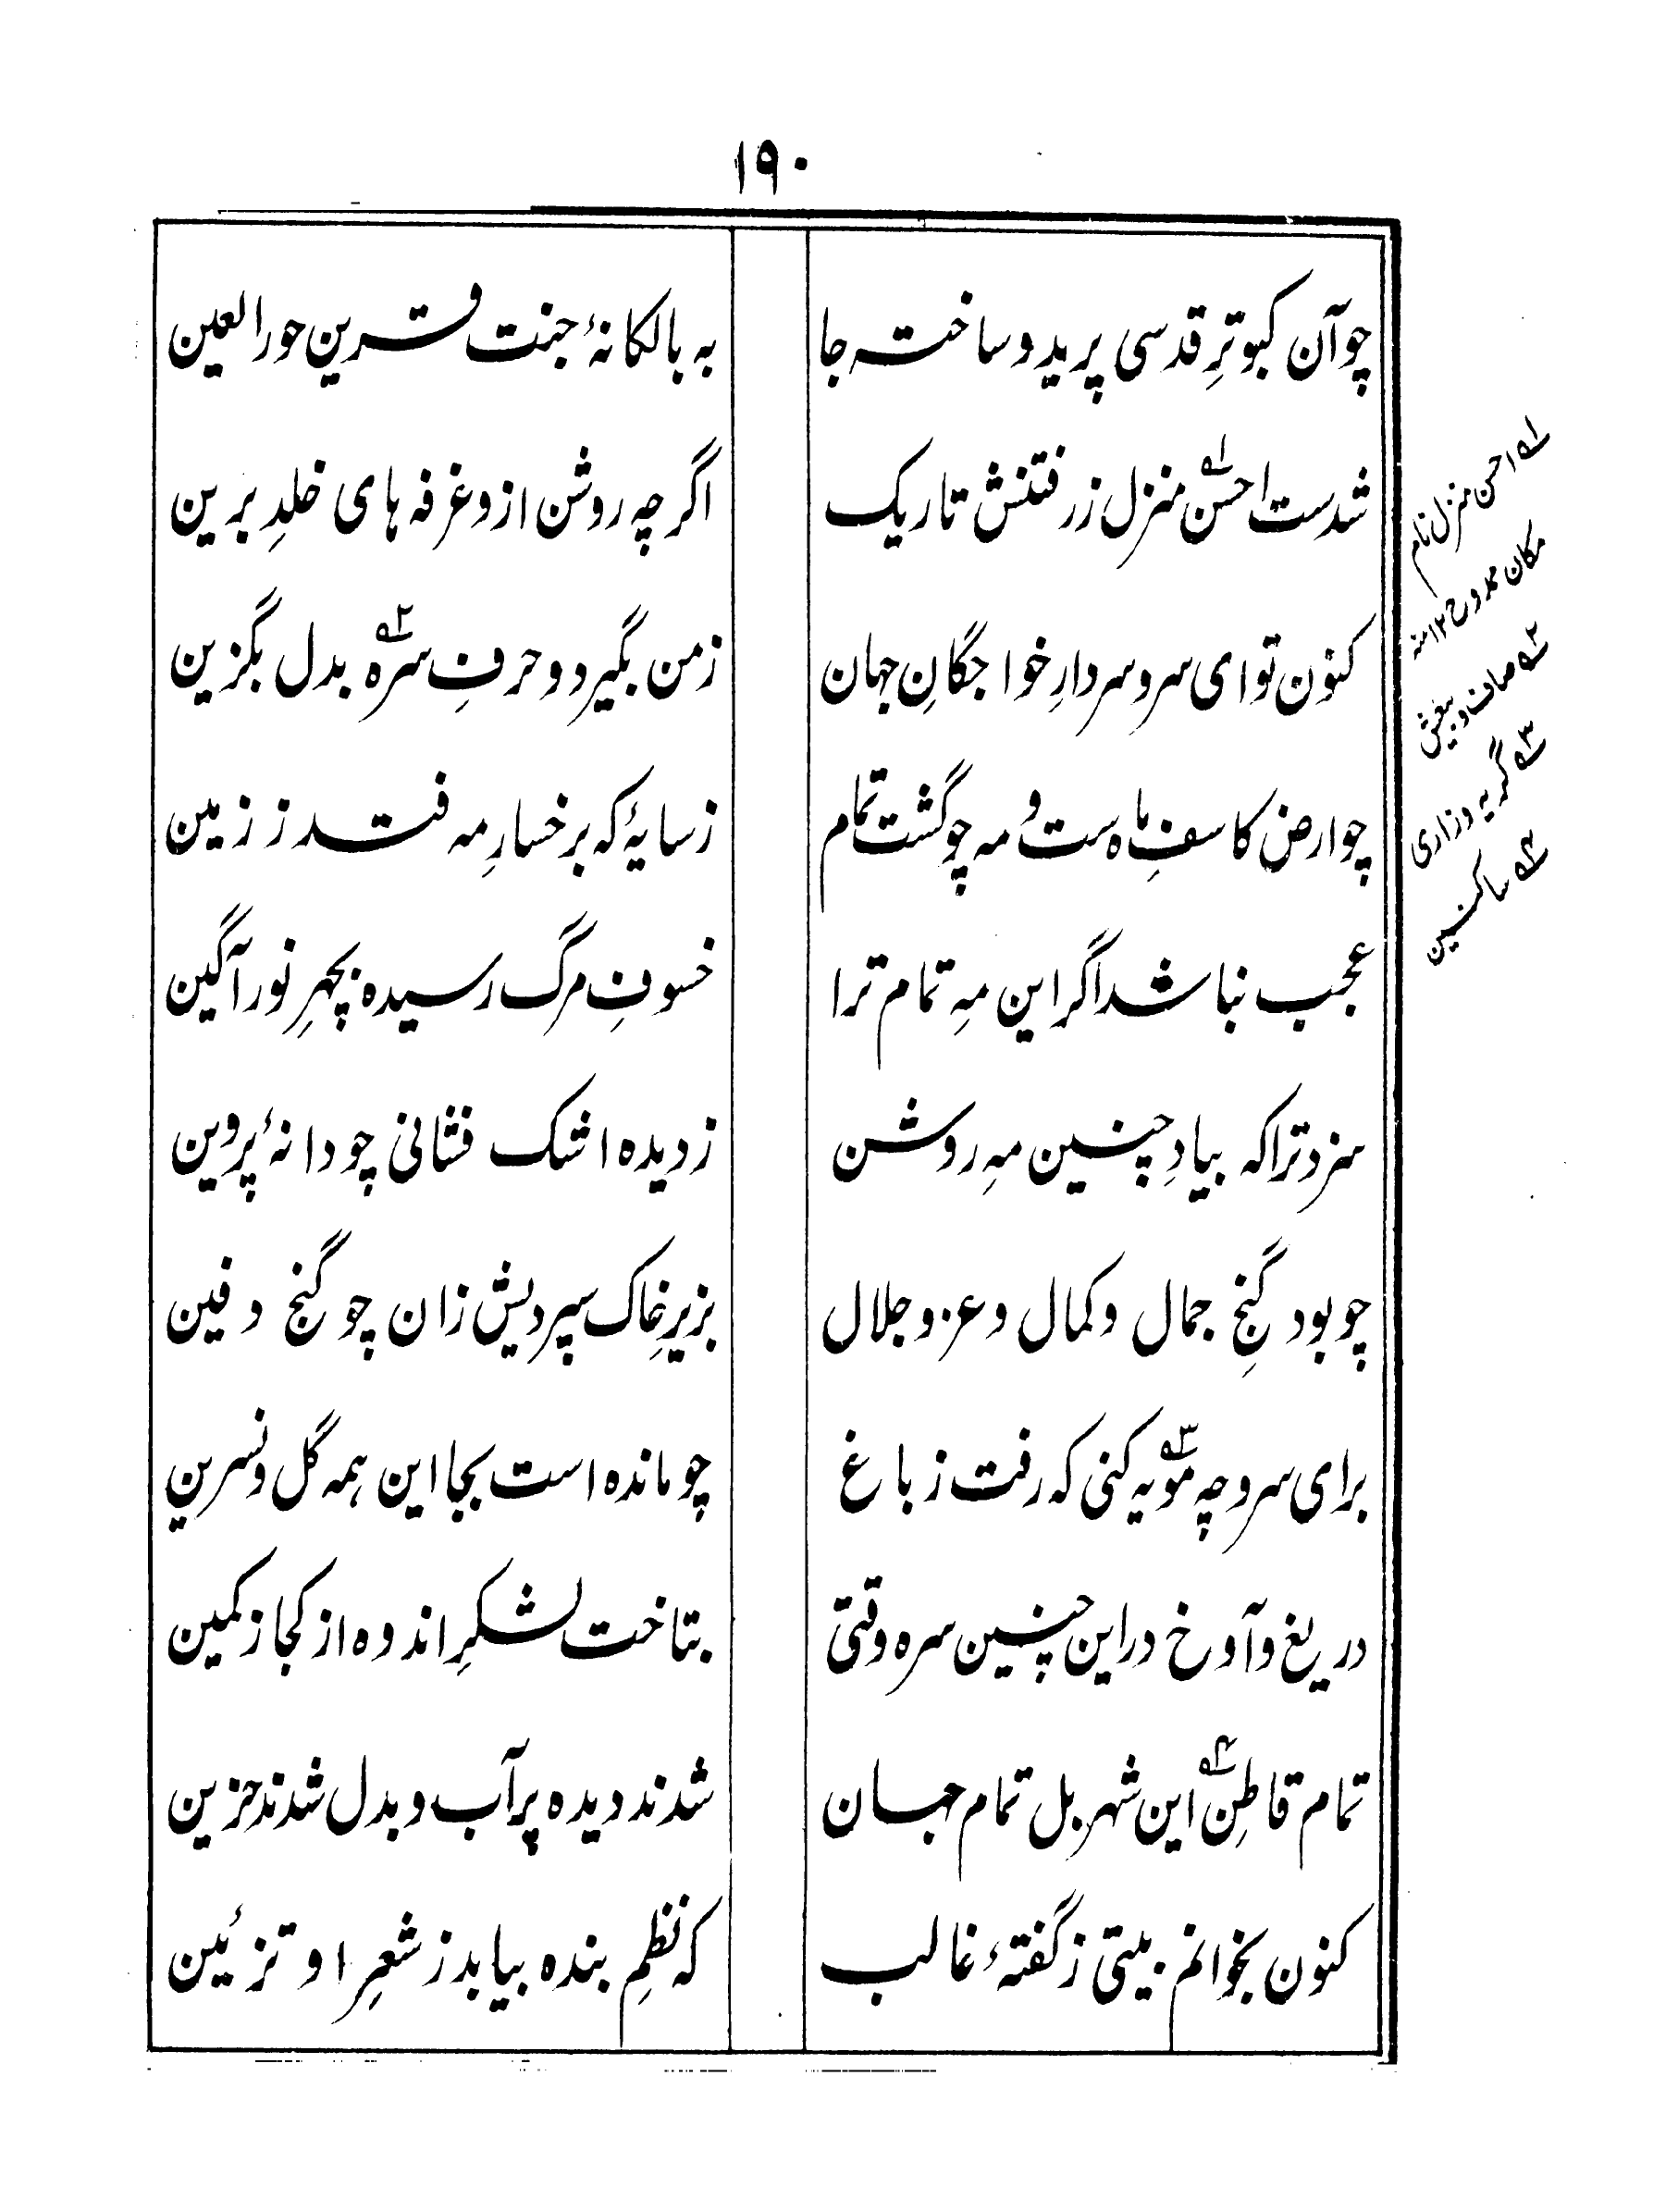 ۱۹۰
چو آن کبوترِ قدسی پرید و ساخته جا
به بالکانهٔ جنت قرین حور العین
شدست احسن۱ منزل ز رفتنش تاریک
اگر چه روشن ازو غرفه های خلدِ برین
کنون تو ای سر و سردارِ خواجگانِ جهان
ز من بگیر دو حرفِ سره۲ بدل بگزین
چو ارض کاسفِ ماه ست و مه چو گشت تمام
ز سایهٔ که بر خسارِ مه فتد ز زمین
عجب نباشد اگر این مهِ تمام ترا
خسوفِ مرگ رسیده بچهرِ نور آگین
سزد ترا که بیادِ چنین مهِ روشن
ز دیده اشک فشانی چو دانهٔ پروین
چو بود گنجِ جمال و کمال و عز و جلال
بزیرِ خاک سپردیش زان چو گنج دفین
برای سرو چه مویه۳ کنی که رفت ز باغ
چو مانده است بجا این همه گل و نسرین
دریغ و آوخ در این چنین سره وقتی
بتاخت لشکرِ اندوه از کجا ز کمین
تمام قاطنِ۴ این شهر بل تمام جهان
شدند دیده پر آب و بدل شدند حزین
کنون بخوانم بیتی ز گفتهٔ غالب
که نظمِ بنده بیابد ز شعرِ او تزئین
۱ احسن منزل نام
مکان ممدوح ۱۲ منہ
۲ صاف و بیغش
۳ گریه و زاری
۴ ساکنین